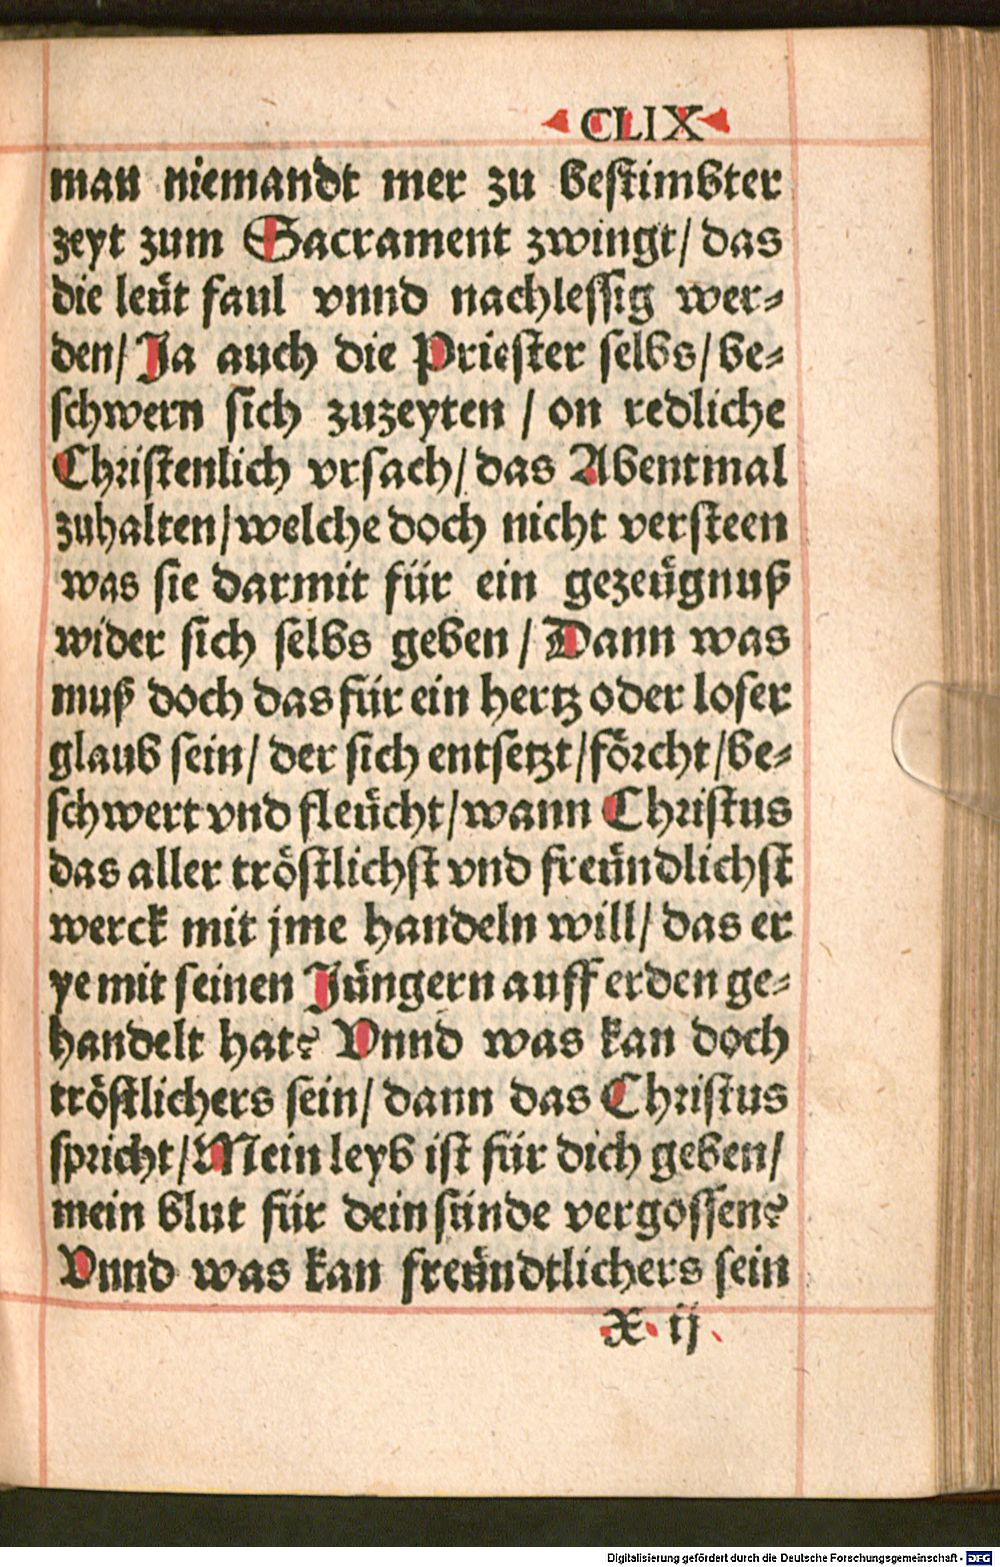 CLIX
man niemandt mer zu bestimbter
zeyt zum Sacrament zwingt/ das
die leüt faul vnnd nachlessig wer⸗
den/ Ja auch die Priester selbs/ be⸗
schwern sich zuzeyten / on redliche
Christenlich vrsach/ das Abentmal
zuhalten/ welche doch nicht versteen
was sie darmit für ein gezeügnuß
wider sich selbs geben / Dann was
muß doch das für ein hertz oder loser
glaub sein/ der sich entsetzt/ förcht/ be⸗
schwert vnd fleücht/ wann Christus
das aller tröstlichst vnd freündlichst
werck mit jme handeln will/ das er
ye mit seinen Jüngern auff erden ge⸗
handelt hat? Vnnd was kan doch
tröstlichers sein/ dann das Christus
spricht/ Mein leyb ist für dich geben/
mein blut für dein sünde vergossen?
Vnnd was kan freündtlichers sein
X ij
Digitalisierung gefördert durch die Deutsche Forschungsgemeinschaft - DFG